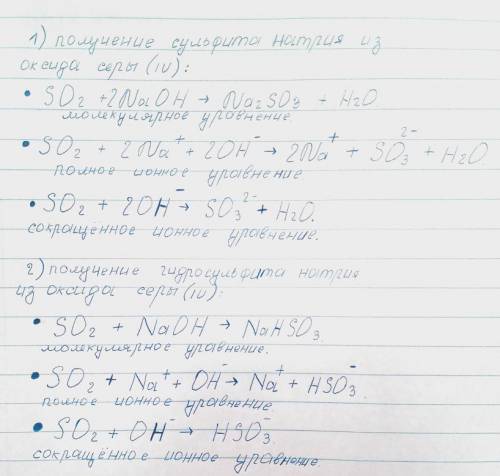 1) получение сульфита натрия из
оксида серы (IV):
• SO₂ + 2NaOH → Na₂SO₃ + H₂O
молекулярное уравнение.
• SO₂ + 2Na⁺ + 2OH⁻ → 2Na⁺ + SO₃²⁻ + H₂O
полное ионное уравнение
• SO₂ + 2OH⁻ → SO₃²⁻ + H₂O.
сокращённое ионное уравнение.
2) получение гидросульфита натрия
из оксида серы (IV):
• SO₂ + NaOH → NaHSO₃.
молекулярное уравнение.
• SO₂ + Na⁺ + OH⁻ → Na⁺ + HSO₃⁻.
полное ионное уравнение
• SO₂ + OH⁻ → HSO₃⁻.
сокращённое ионное уравнение.